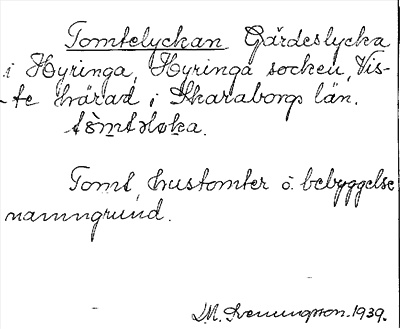 Tomtelyckan Gärdeslycka
i Hyringa, Hyringa socken, Vis-
-te härad i Skaraborgs län.
Tomt, hustomter o. bebyggelse
namngrund.
M. Svenungsson. 1939.